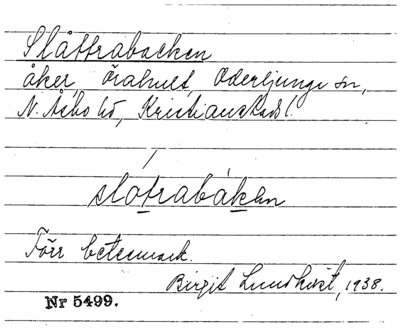 Slåttrabacken
åker, Örahult, Oderljunga sn,
N. Åsbo hd, Kristianstads l.
slótrabáken
Förr betesmark.
Birgit Lundkvist, 1938.
Nr 5499.